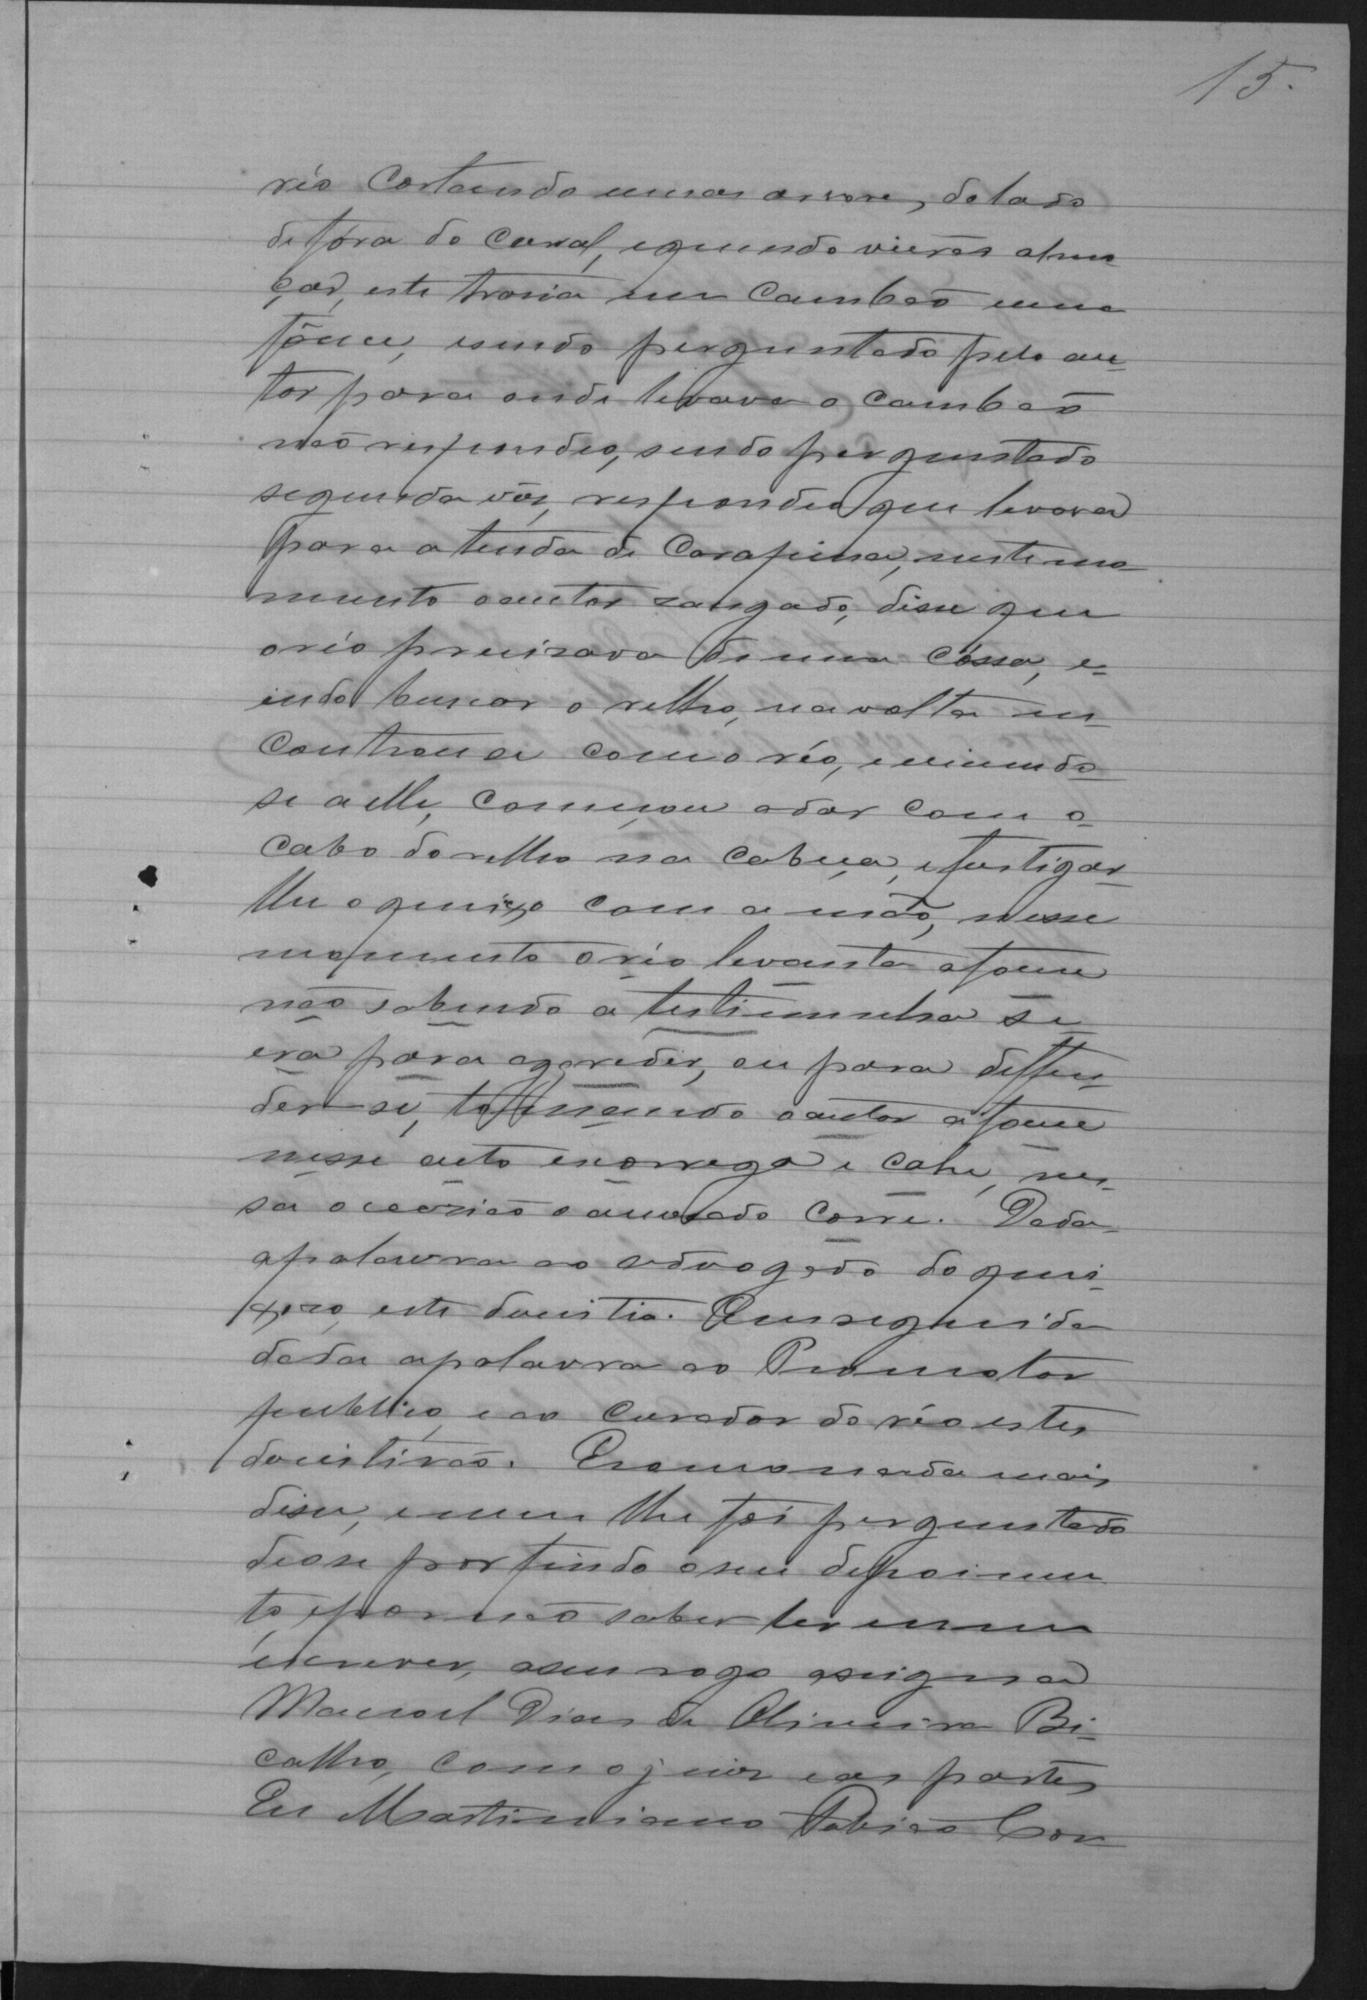 15.
réo cortando uma arvore, do lado
de fóra do curral, e quando vierão almo-
çar, este trasia um cambão e uma
fouce, e sendo perguntado pelo au-
tor para onde levava o cambão
não respondeo, sendo perguntado
segunda vês, respondeo que levava
para a tenda de Carapina, neste mo-
mento o autor zangado, disse que
o réo precisava de uma cóssa, e
indo buscar o relho, na volta en-
controu se com o réo, e virando
se a elle, começou a dar com o
cabo do relho na cabeça, e fustigar-
lhe o queixo com a mão, nesse
momento o réo levanta a fouce
não sabendo a testimunha se
era para agredir, ou para deffen-
der-se, tomando o autor a fouce
nesse acto escorrega e cahe, nes-
sa occasião o acusado corre. Dada
a palavra ao advogado do quei-
xoso, este desistio. Em seguida
dada a palavra ao Promotor
publico, e ao curador do réo estes
desistirão. E como nada mais
disse, e nem lhe foi perguntado
deo se por findo o seu depoimen
to, e por não saber ler e nem
escrever, a seu rogo assigna
Manoel Dias de Oliveira Bi-
calho, com o juiz e as partes
Eu Martiniano Cor